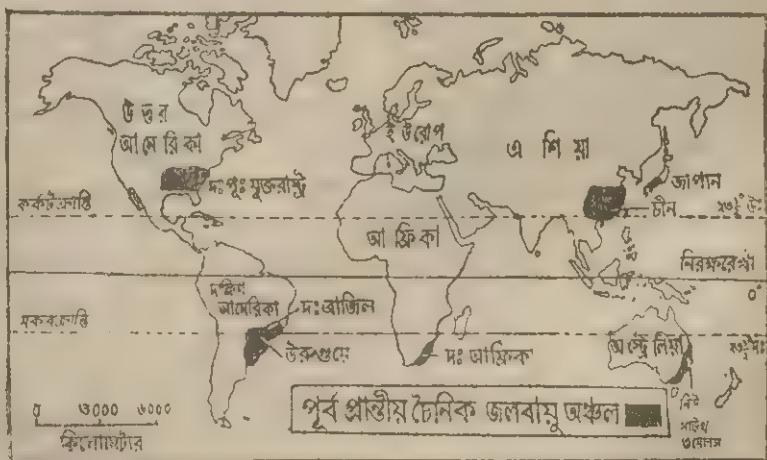 উত্তর
আমেরিকা
ইউরোপ
এশিয়া
দঃপূঃ যুক্তরাষ্ট্র
জাপান
কর্কটক্রান্তি
চীন
২৩½° উঃ
আফ্রিকা
নিরক্ষরেখা
০°
দক্ষিণ
আমেরিকা
দঃ ব্রাজিল
মকরক্রান্তি
অস্ট্রেলিয়া
২৩½° দঃ
উরুগুয়ে
দঃ আফ্রিকা
নিউ
সাউথ
ওয়েলস
০ ৩০০০ ৬০০০
কিলোমিটার
পূর্ব প্রান্তীয় চৈনিক জলবায়ু অঞ্চল